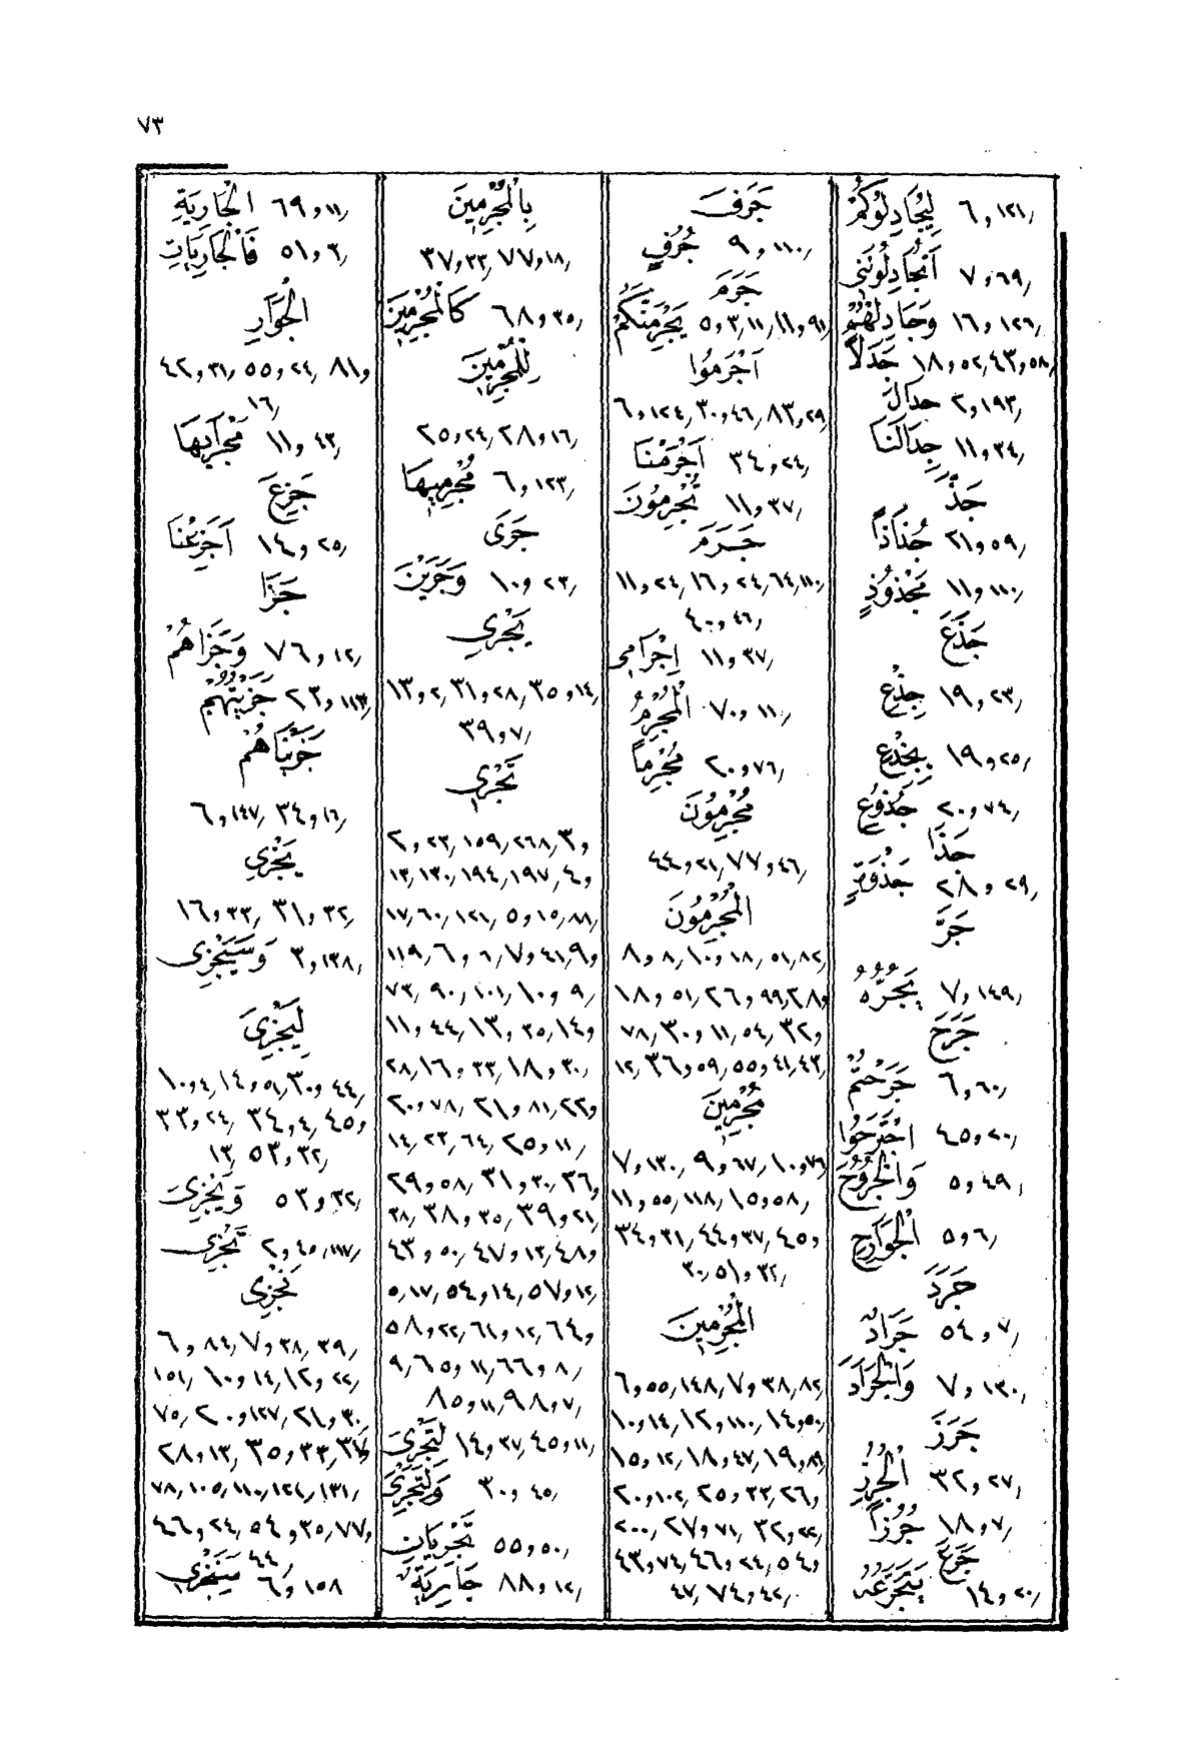 ٧٣
لِيُجَادِلُوكُمْ ٦ ,١٢١
أَتُجَادِلُونَنِي ٧ ,٦٩
وَجَادِلْهُمْ ١٦ ,١٢٦
جَدَلًا ١٨ ,٥٢,٤٣ ,٥٨
جِدَالَ ٢ ,١٩٣
جِدَالَنَا ١١ ,٣٤
جَذَّ
جُذَاذًا ٢١ ,٥٩
مَجْذُوذٍ ١١ ,١١٠
جَذَعَ
جِذْعِ ١٩ ,٢٣
بِجِذْعِ ١٩ ,٢٥
جُذُوعِ ٢٠ ,٧٤
جَذَا
جَذْوَةٍ ٢٨ ,٢٩
جَرَّ
يَجُرُّهُ ٧ ,١٤٩
جَرَحَ
جَرَحْتُمْ ٦ ,٦٠
اجْتَرَحُوا ٤٥ ,٢٠
وَالْجُرُوحَ ٥ ,٤٩
الْجَوَارِحِ ٥ ,٦
جَرَدَ
جَرَادٌ ٥٤ ,٧
وَالْجَرَادَ ٧ ,١٣٠
جَرَزَ
الْجُرُزِ ٣٢ ,٢٧
جُرُزًا ١٨ ,٧
جَرَعَ
يَتَجَرَّعُهُ ١٤ ,٢٠
جَرَفَ
جُرُفٍ ٩ ,١١٠
جَرَمَ
يَجْرِمَنَّكُمْ ٥ ,٣ ,١١ ,١١ ,٩١
أَجْرَمُوا
٦ ,١٢٤ ,٣٠ ,٤٦ ,٨٣ ,٢٩
أَجْرَمْنَا ٣٤ ,٢٤
تُجْرِمُونَ ١١ ,٣٧
جَرَمَ
١١ ,٢٤ ,١٦ ,٢٤ ,٦٤ ,١١٠
٤٠ ,٤٦
إِجْرَامِي ١١ ,٣٧
الْمُجْرِمُ ٧٠ ,١١
مُجْرِمًا ٢٠ ,٧٦
مُجْرِمُونَ
٤٤ ,٢١ ,٧٧ ,٤٦
الْمُجْرِمُونَ
٨ ,٨ ,١٠ ,١٨ ,٥١ ,٨٢
١٨ ,٥١ ,٢٦ ,٩٩ ,٢٨
٧٨ ,٣٠ ,١١ ,٥٤ ,٣٢
١٢ ,٣٦ ,٥٩ ,٥٥ ,٤١ ,٤٣
مُجْرِمِينَ
٧ ,١٣٠ ,٩ ,٦٧ ,١٠ ,٧٦
١١ ,٥٥ ,١١٨ ,١٥ ,٥٨
٣٤ ,٣١ ,٤٤ ,٣٧ ,٤٥
٣٠ ,٥١ ,٣٢
الْمُجْرِمِينَ
٦ ,٥٥ ,١٤٨ ,٧ ,٣٨ ,٨٢
١٠ ,١٤ ,١٢ ,١١٠ ,١٤ ,٥٠
١٥ ,١٢ ,١٨ ,٤٧ ,١٩ ,٨٩
٢٠ ,١٠٢ ,٢٥ ,٣٣ ,٢٦
٢٠٠ ,٢٧ ,٧١ ,٣٢ ,٢٢
٤٣ ,٧٤ ,٤٦ ,٢٤ ,٥٤
٤٧ ,٧٤ ,٤٢
بِالْمُجْرِمِينَ
٣٧ ,٣٣ ,٧٧ ,١٨
كَالْمُجْرِمِينَ ٦٨ ,٣٥
لِلْمُجْرِمِينَ
٢٥ ,٢٤ ,٢٨ ,١٦
مُجْرِمِيهَا ٦ ,١٢٣
جَرَى
وَجَرَيْنَ ١٠ ,٢٣
يَجْرِي
١٣ ,٢ ,٣١ ,٢٨ ,٣٥ ,١٤
٣٩ ,٧
تَجْرِي
٢ ,٢٣ ,١٥٩ ,٢٦٨ ,٣
١٣ ,١٣٠ ,١٩٤ ,١٩٧ ,٤
١٧ ,٦٠ ,١٢١ ,٥ ,١٥ ,٨٨
١١٩ ,٦ ,٦ ,٧ ,٤١ ,٩
٧٣ ,٩٠ ,١٠١ ,١٠ ,٩
١١ ,٤٤ ,١٣ ,٣٥ ,١٤
٢٨ ,١٦ ,٣٣ ,١٨ ,٣٠
٢٠ ,٧٨ ,٢١ ,٨١ ,٢٢
١٤ ,٢٣ ,٦٤ ,٢٥ ,١١
٢٩ ,٥٨ ,٣١ ,٣٠ ,٣٦
٣٨ ,٣٨ ,٣٥ ,٣٩ ,٢١
٤٣ ,٥٠ ,٤٧ ,١٣ ,٤٨
٥ ,١٧ ,٥٤ ,١٤ ,٥٧ ,١٢
٥٨ ,٢٢ ,٦١ ,١٢ ,٦٤
٩ ,٦٥ ,١١ ,٦٦ ,٨
٨٥ ,١١ ,٩٨ ,٧
لِتَجْرِيَ ١٤ ,٣٧ ,٤٥ ,١١
وَلِتَجْرِيَ ٣٠ ,٤٥
تَجْرِيَانِ ٥٥ ,٥٠
جَارِيَةٌ ٨٨ ,١٢
الْجَارِيَةِ ٦٩ ,١١
فَالْجَارِيَاتِ ٥١ ,٣
الْجَوَارِ
٤٢ ,٣١ ,٥٥ ,٢٤ ,٨١
١٦
مَجْرٰيهَا ١١ ,٤٣
جَزِعَ
أَجَزِعْنَا ١٤ ,٢٥
جَزَا
وَجَزَاهُمْ ٧٦ ,١٢
جَزَيْتُهُمُ ٢٣ ,١١٣
جَزَيْنَاهُمْ
٦ ,١٤٧ ,٣٤ ,١٦
يَجْزِي
١٦ ,٣٣ ,٣١ ,٣٢
وَسَيَجْزِي ٣ ,١٣٨
لِيَجْزِيَ
١٠ ,٤ ,١٤ ,٥١ ,٣٠ ,٤٤
٣٣ ,٢٤ ,٣٤ ,٤ ,٤٥
١٣ ,٥٣ ,٣٢
وَيَجْزِيَ ٥٣ ,٣٢
تَجْزِي ٢ ,٤٥ ,١١٧
نَجْزِي
٦ ,٨٤ ,٧ ,٣٨ ,٣٩
١٥١ ,٦٠ ,١٤ ,١٢ ,٢٢
٧٥ ,٢٠ ,١٢٧ ,٢١ ,٣٠
٢٨ ,١٣ ,٣٥ ,٣٣ ,٣٧
٧٨ ,١٠٥ ,١١٠ ,١٢١ ,١٣١
٤٦ ,٢٤ ,٥٤ ,٣٥ ,٧٧
٤٤
سَنَجْزِي ٦ ,١٥٨